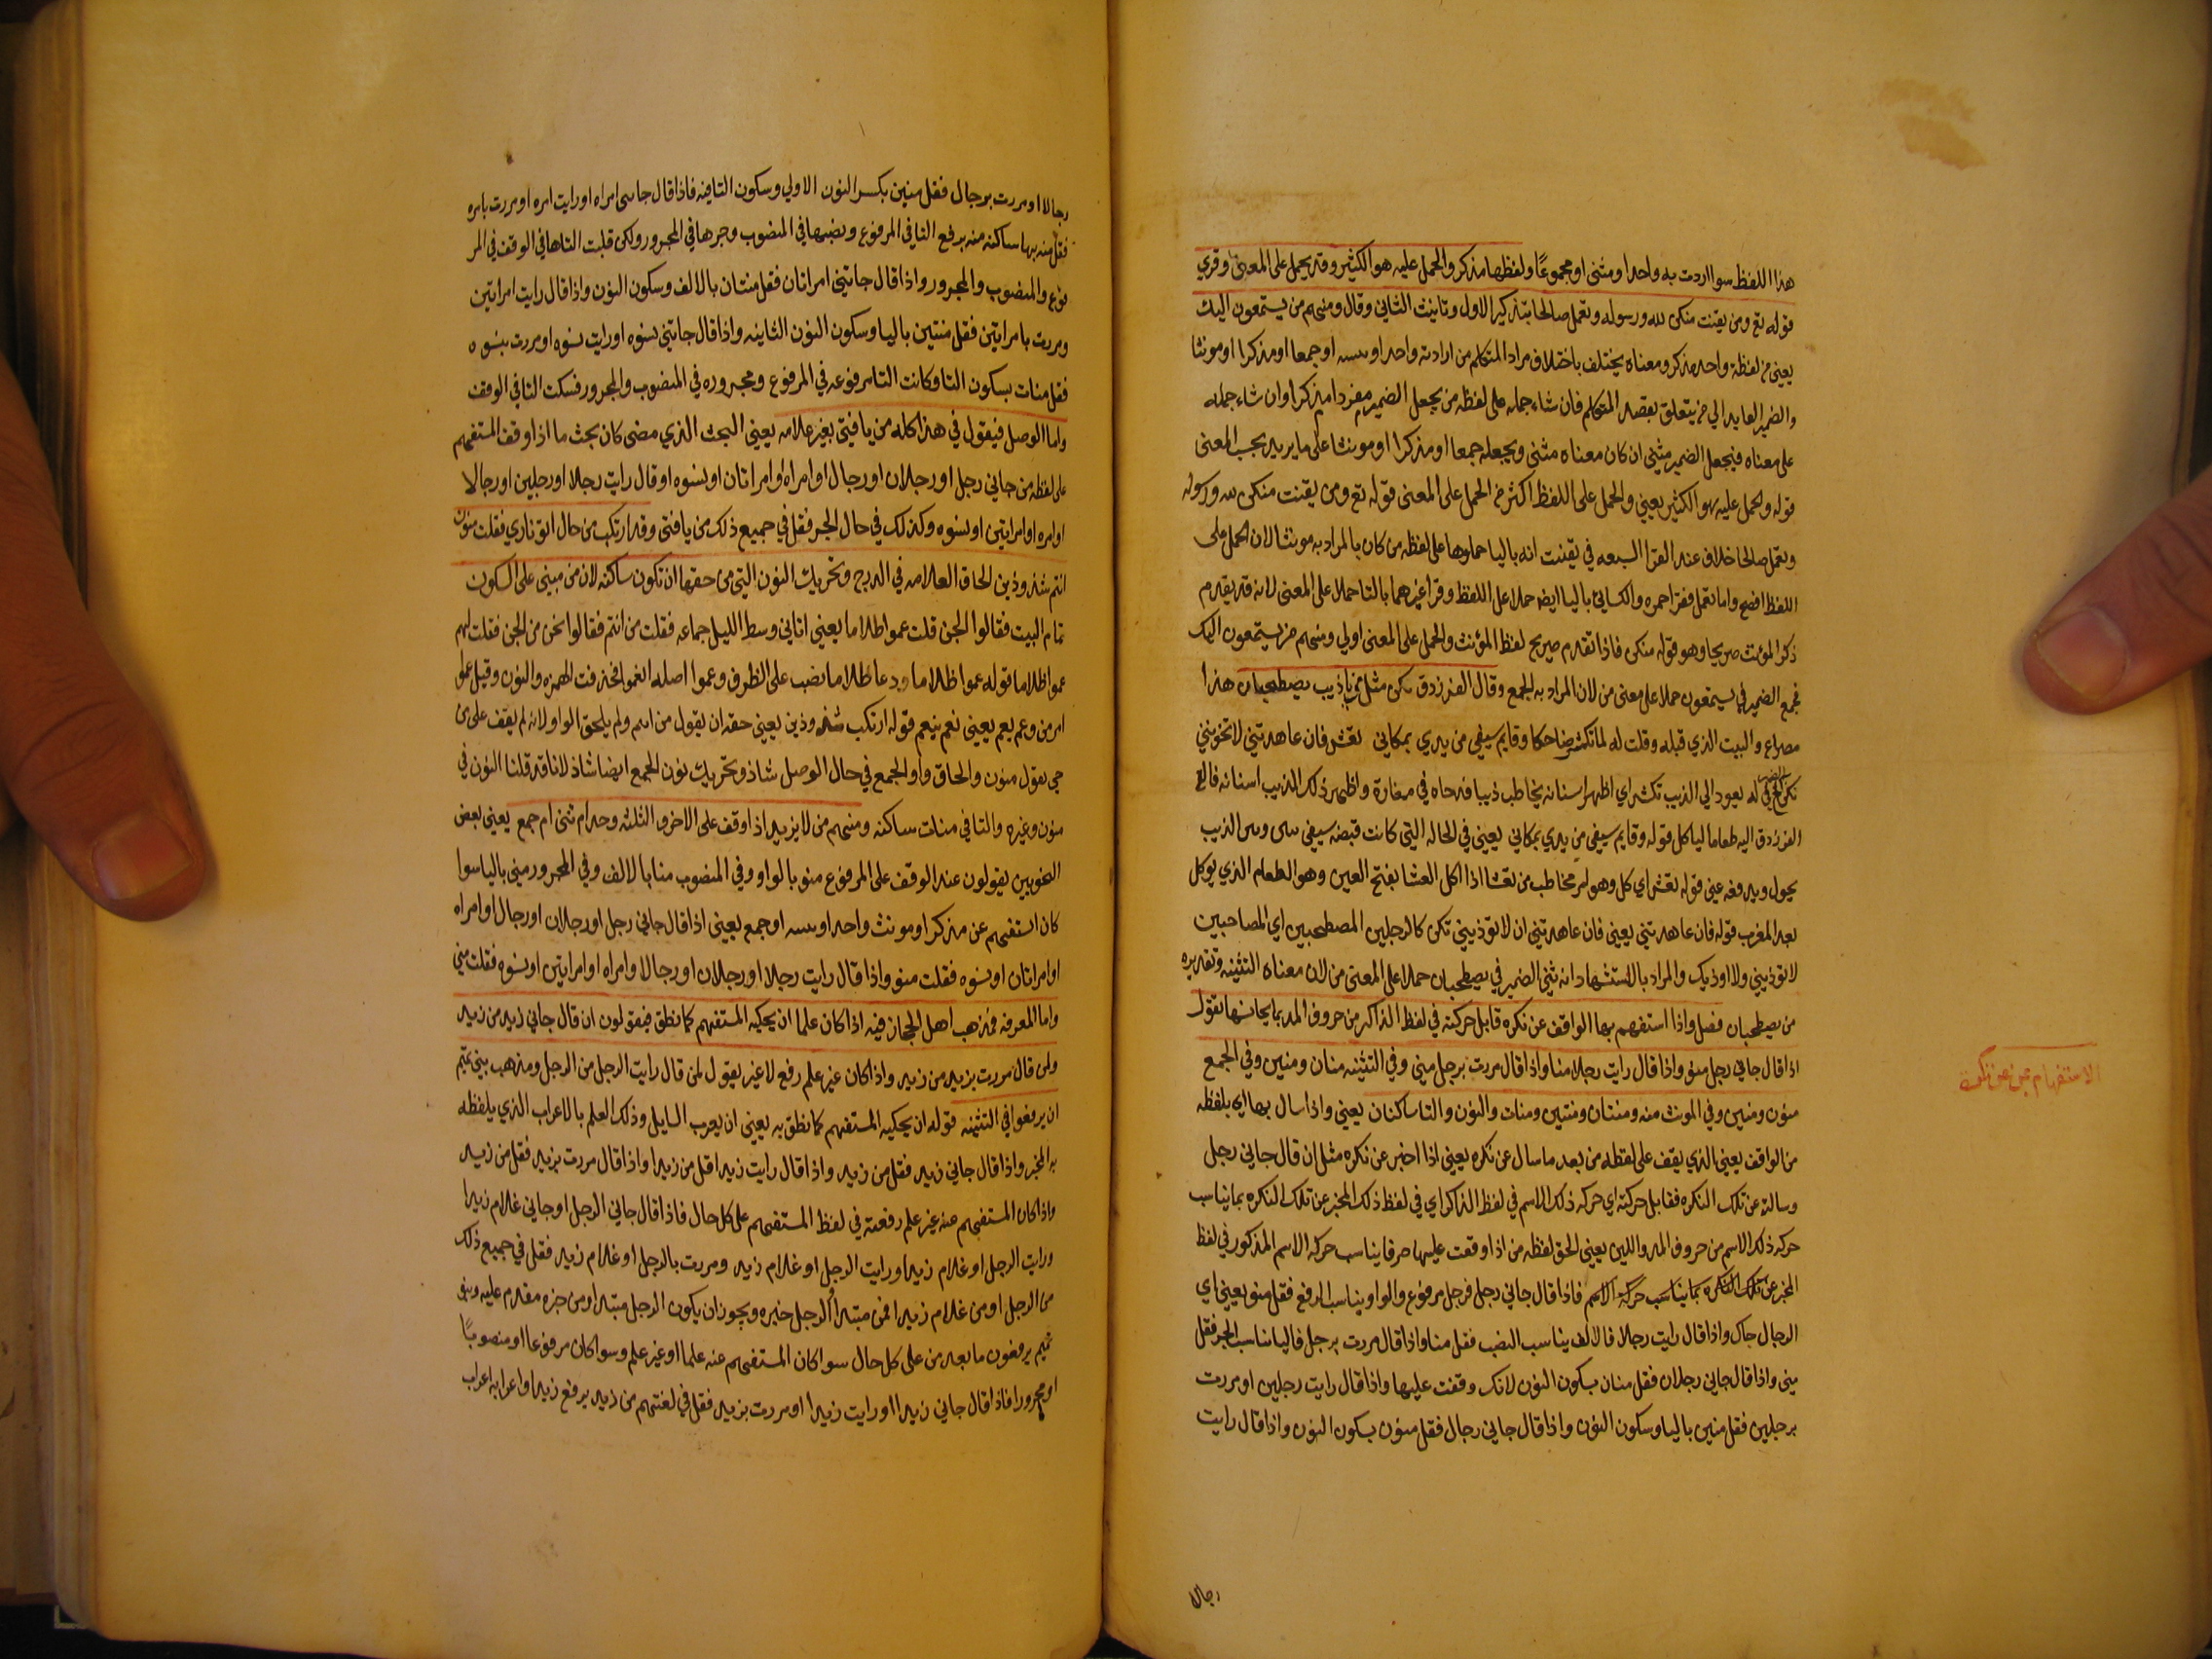 هذا اللفظ سوا اردت به واحدا او مثنى او مجموعًا ولفظها مذكر والحمل عليه هو الكثير وقد يحمل على المعنى وقري
قوله تع ومن يقنت منكن لله ورسوله وتعمل صالحا بتذكير الاول وتانيث الثاني وقال ومنهم من يستمعون اليك
يعني من لفظة واحد مذكر ومعناه يختلف باختلاف مراد المتكلم من ارادته واحدا او جمعا او مذكرا او مونثا
والضمير العايد الي من يتعلق بقصد المتكلم فان شاء حمله على لفظه من يجعل الضمير مفردا مذكرا وان شاء حمله
على معناه فيجعل الضمير مثنى ان كان معناه مثنى ويجعله جمعا او مذكرا او مونثا على ما يريد بحسب المعنى
قوله والحمل عليه هو الكثير يعني والحمل على اللفظ اكثر من الحمل على المعنى قوله تع ومن يقنت منكن لله ورسوله
وتعمل صالحا خلاف عند القرا السبعه في يقنت انه باليا حملوها على لفظه من كان بالمراد به مونثا لان الحمل على
اللفظ افصح واما تعمل فقرا حمزه والكسايي باليا ايضا حملا على اللفظ وقرا غيرهما بالتا حملا على المعنى لانه قد يقدم
ذكر المؤنث صريحا وهو قوله منكن فاذا تقدم صريح لفظ المؤنث والحمل على المعنى اولي ومنهم من يستمعون اليك
فجمع الضمير في يستمعون حملا على معنى من لان المراد به الجمع وقال الفرزدق نكن مثل من ياذيب يصطحبان هذا
مصراع والبيت الذي قبله وقلت له لما تكشر ضاحكا وقايم سيفي من يدي بمكاني تعش فان عاهدتني لا تخونني
نكن له يعود الي الذيب تكشر اي اظهر اسنانه يخاطب ذيبا في مغارة واظهر ذلك الذيب اسنانه فالقى
الفرزدق اليه طعاما لياكل قوله وقايم سيفي من يدي بمكاني يعني في الحاله التي كانت قبضه سيفي الذيب
يحول ويدفعه عني قوله تعش اي كل وهو امر مخاطب من تعشا اذا اكل العشا بفتح العين وهو الطعام الذي يوكل
بعد المغرب قوله فان عاهدتني يعني فان عاهدتني ان لا توذيني تكن كالرجلين المصطحبين اي المصاحبين
لا توذيني ولا اوذيك والمراد بالاستشهاد انه ثني الضمير في يصطحبان حملا على المعنى من لان معناه التثنيه وتقديره
من يصطحبان فصل واذا استفهم بها الواقف عن نكره قابل حركته في لفظ الذاكر من حروف المد بما يجانسها تقول
اذا قال جاني رجل منو واذا قال رايت رجلا منا واذا قال مررت برجل مني وفي التثنيه منان ومنين وفي الجمع
منون ومنين وفي المونث منه ومنتان ومنتين ومنات والنون والتا ساكنان يعني واذا سال بها اي بلفظه
من الواقف يعني الذي يقف على لفظه من بعد ما سال عن نكره يعني اذا اخبر عن نكره مثل ان قال جاني رجل
وسالته عن تلك النكره فقابل حركته اي حركه ذلك الاسم في لفظ الذاكر اي في لفظ ذلك المخبر عن تلك النكره بما يناسب
حركه ذلك الاسم من حروف المد واللين يعني الحق لفظه من اذا وقعت عليها حرفا يناسب حركه الاسم المذكور في لفظ
المخبر عن تلك النكره بما يناسب حركه الاسم فاذا قال جاني رجل فرجل مرفوع والواو يناسب الرفع فقل منو يعني اي
الرجال جاك واذا قال رايت رجلا فالالف يناسب النصب فقل منا واذا قال مررت برجل فاليا يناسب الجر فقل
مني واذا قال جاني رجلان فقل منان بسكون النون لانك وقفت عليها واذا قال رايت رجلين او مررت
برجلين فقل منين باليا وسكون النون واذا قال جاني رجال فقل منون بسكون النون واذا قال رايت
رجالا
الاستفهام بمن عن نكرة
رجالا او مررت برجال فقل منين بكسر النون الاولي وسكون الثانيه فاذا قال جاتني امراه او رايت امره او مررت بامره
فقل منه بها ساكنه منه برفع التا في المرفوع ونصبها في المنصوب وجرها في المجرور ولكن قلبت التا ها في الوقف في المر
فوع والمنصوب والمجرور واذا قال جاتني امراتان فقل منتان بالالف وسكون النون واذا قال رايت امراتين
ومررت بامراتين فقل منتين باليا وسكون النون الثانيه واذا قال جاتني نسوه او رايت نسوه او مررت بنسوه
فقل منات بسكون التا وكانت التا مرفوعه في المرفوع ومجروره في المنصوب والمجرور فسكت التا في الوقف
واما الوصل فيقول في هذا كله من يا فتي بغير علامه يعني البحث الذي مضى كان بحث ما اذا وقف المستفهم
على لفظه من جاني رجل او رجلان او رجال او امراه او امراتان او نسوه او قال رايت رجلا او رجلين او رجالا
او امره او امراتين او نسوه وكذلك في حال الجر فقل في جميع ذلك من يا فتى وقد ارتكب من قال اتو ناري فقلت منون
انتم شذوذين الحاق العلامه في الدرج وتحريك النون التي من حقها ان تكون ساكنه لان من مبني على السكون
تمام البيت فقالوا الجن قلت عموا ظلاما يعني اتاني وسط الليل جماعه فقلت من انتم فقالوا نحن من الجن فقلت لهم
عموا ظلاما قوله عموا ظلاما ظلاما نصب على الظرف وعموا اصله انعموا فحذفت الهمزه والنون وقيل عموا
امر من وعم يعم يعني نعم ينعم قوله ارتكب شذوذين يعني حقه ان يقول من انتم ولم يلحق الواو لانه لم يقف على من
حتى يقول منون والحاق واو الجمع في حال الوصل شاذ وتحريك نون الجمع ايضا شاذ لانا قد قلنا النون في
منون وغيره والتا في منات ساكنه ومنهم من لا يزيد اذا وقف على الاحرف الثلثه وحد ام ثنى ام جمع يعني بعض
النحويين يقولون عند الوقف على المرفوع منو بالواو وفي المنصوب منا بالالف وفي المجرور مني باليا سوا
كان استفهم عن مذكر او مونث واحد او جمع يعني اذا قال جاني رجل او رجلان او رجال او امراه
او امراتان او نسوه فقلت منو واذا قال رايت رجلا او رجلان او رجالا وامراه او امراتين او نسوه فقلت مني
واما المعرفه فمذهب اهل الحجاز فيه اذا كان علما ان يحكيه المستفهم كما نطق فيقولون ان قال جاني زيد من زيد
ولمن قال مررت بزيد من زيد واذا كان غير علم رفع لا غير يقول لمن قال رايت الرجل من الرجل ومذهب بني تميم
ان يرفعوا في التثنيه قوله ان يحكيه المستفهم كما نطق به يعني ان يعرب السايل وذلك العلم بالاعراب الذي يلفظه
به المخبر واذا قال جاني زيد فقل من زيد واذا قال رايت زيدا قل من زيدا واذا قال مررت بزيد فقل من زيد
واذا كان المستفهم عنه غير علم رفعته في لفظ المستفهم على كل حال فاذا قال جاني الرجل او جاني غلام زيدا
ورايت الرجل او غلام زيد او رايت الرجل او غلام زيد ومررت بالرجل او غلام زيد فقل في جميع ذلك
من الرجل او من غلام زيد فمن مبتدا والرجل خبره ويجوز ان يكون الرجل مبتدا ومن خبره مقدم عليه وبنو
تميم يرفعون ما بعد من على كل حال سوا كان المستفهم عنه علما او غير علم وسوا كان مرفوعا او منصوبًا
او مجرورا فاذا قال جاني زيد او رايت زيدا او مررت بزيد فقل في لغتهم من زيد يرفع زيد واعرابه اعراب